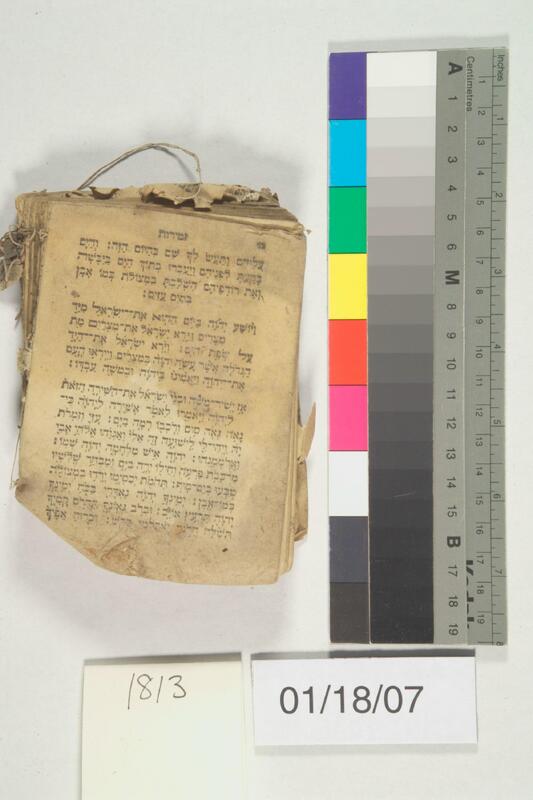 זמירות
עליהם ותעש לך שם כהיום הזה: והים
בקעת לפניהם ויעברו בתוך הים ביבשה
ואת רודפיהם השלכת במצולת כמו אבן
במים עזים:
ויושע יהוה ביום ההוא את־ישראל מיד
מצרים וירא ישראל את־מצרים מת
על שפת הים: וירא ישראל את־היד
הגדלה אשר עשה יהוה במצרים וייראו העם
את־יהוה ויאמינו ביהוה ובמשה עבדו:
אז ישיר־משה ובני ישראל את־השירה הזאת
ליהוה ויאמרו לאמר אשירה ליהוה כי־
גאה גאה סוס ורכבו רמה בים: עזי וזמרת
יה ויהי־לי לישועה זה אלי ואנוהו אלהי אבי
וארממנהו: יהוה איש מלחמה יהוה שמו:
מרכבת פרעה וחילו ירה בים ומבחר שלישיו
טבעו בים־סוף: תהמת יכסימו ירדו במצולת
כמו־אבן: ימינך יהוה נאדרי בכח ימינך
יהוה תרעץ אויב: וברב גאונך תהרס קמיך
תשלח חרנך יאכלמו כקש: וברוח אפיך
1813
01/18/07
Inches
Centimetres
1 2 3 4 5 6 7 8
1 2 3 4 5 6 7 8 9 10 11 12 13 14 15 16 17 18 19
A 1 2 3 4 5 6 M 8 9 10 11 12 13 14 15 B 17 18 19